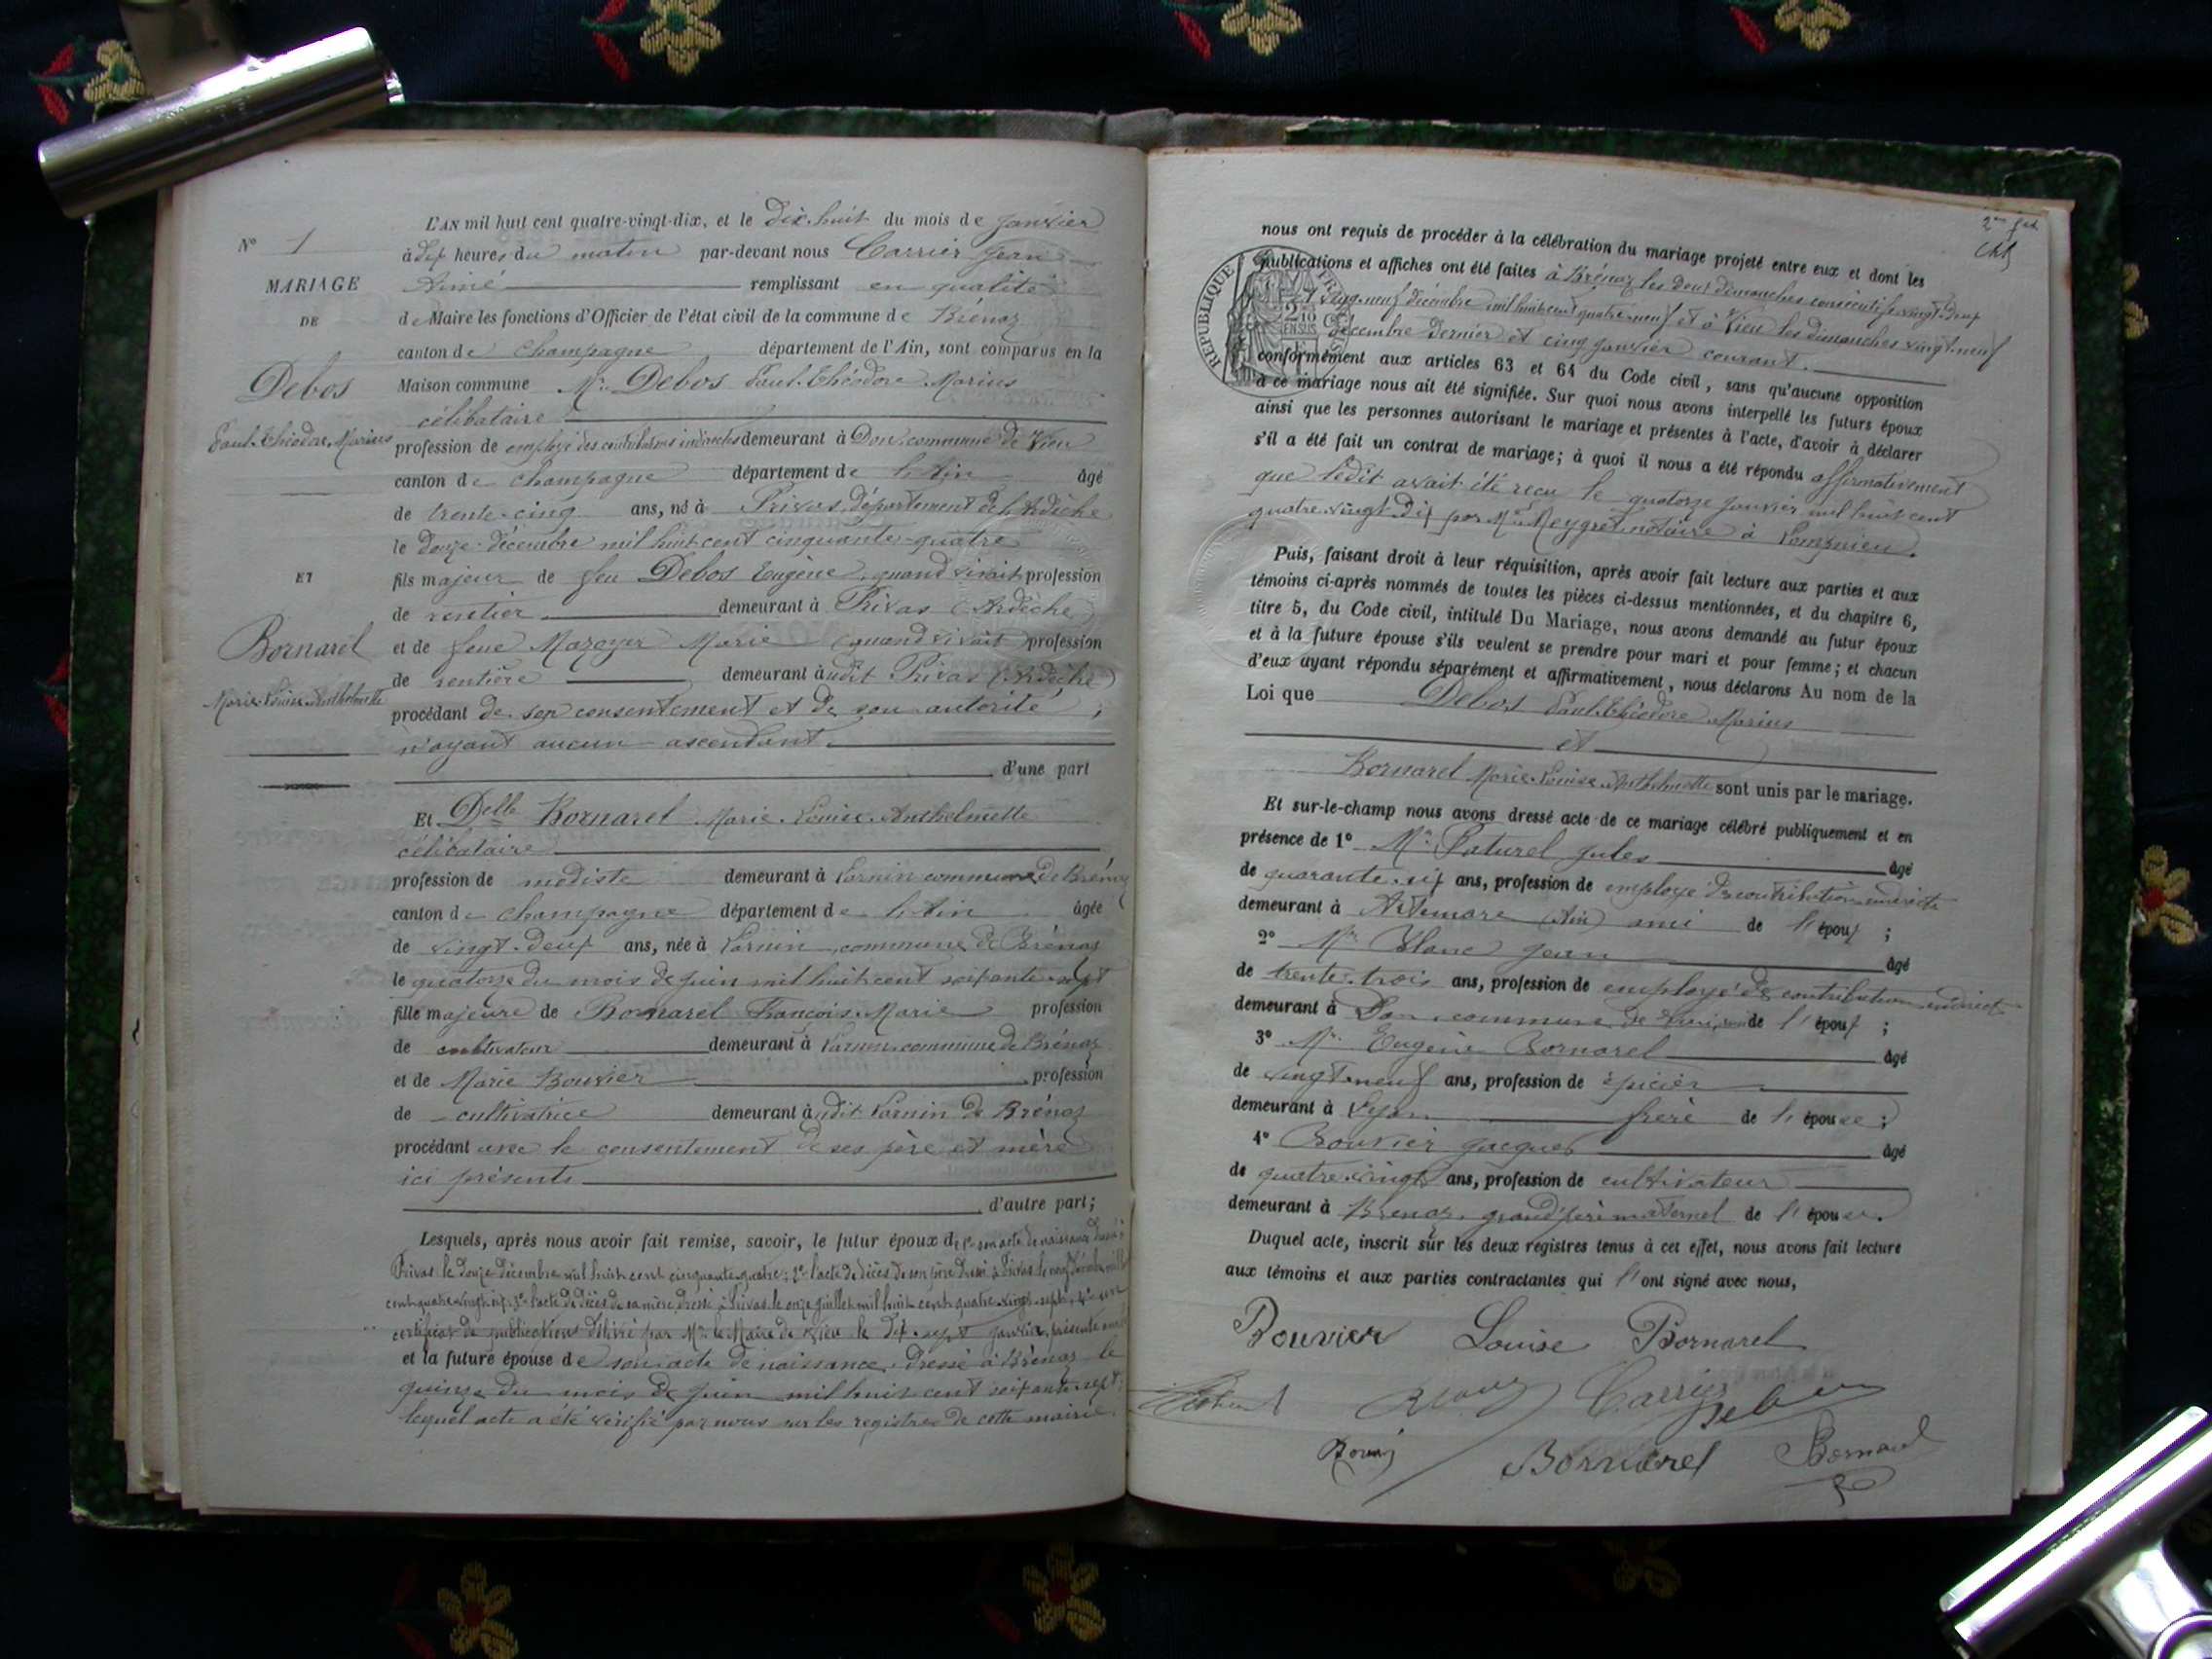 L'AN mil huit cent quatre-vingt-dix, et le dix-huit du mois de janvier
N° 1
à dix heures du matin par-devant nous Carrier Jean
MARIAGE
Aimé remplissant en qualité
DE
de Maire les fonctions d'Officier de l'état civil de la commune de Brénaz
canton de Champagne département de l'Ain, sont comparus en la
Debos
Maison commune Mr. Debos Paul Théodore Marius
célibataire
Paul Théodore Marius
profession de employé des contributions indirectes demeurant à Don commune de Vieu
canton de Champagne département de l'Ain âgé
de trente-cinq ans, né à Privas, département de l'Ardèche
le douze décembre mil huit cent cinquante-quatre
ET
fils majeur de feu Debos Eugène, quand vivait profession
de rentier demeurant à Privas (Ardèche)
Bornarel
et de feue Mazoyer Marie (quand vivait) profession
de rentière demeurant à udit Privas (Ardèche)
Marie Louise Anthelmette
procédant de son consentement et de son autorité,
n'ayant aucun ascendant.
d'une part
Et Delle Bornarel Marie Louise Anthelmette
célibataire
profession de modiste demeurant à commune de Brénaz
canton de Champagne département de l'Ain âgée
de vingt-deux ans, née à commune de Brénaz
le quatorze du mois de juin mil huit cent soixante-sept
fille majeure de Bornarel François Marie profession
de cultivateur demeurant à commune de Brénaz
et de Marie Bouvier profession
de cultivatrice demeurant à udit de Brénaz
procédant avec le consentement de ses père et mère
ici présents
d'autre part;
Lesquels, après nous avoir fait remise, savoir, le futur époux de 1° son acte de naissance dressé à
Privas le douze décembre mil huit cent cinquante-quatre; 2° l'acte de décès de son père dressé à Privas le
cent quatre-vingt-six; 3° l'acte de décès de sa mère, dressé à Privas, le onze juillet mil huit cent quatre-vingt-sept, 4° un
certificat de publications délivré par Mr. le Maire de Vieu le dix-sept janvier, présente
et la future épouse de son acte de naissance, dressé à Brénaz le
quinze du mois de juin mil huit cent soixante-sept;
lequel acte a été vérifié par nous sur les registres de cette mairie.
nous ont requis de procéder à la célébration du mariage projeté entre eux et dont les
publications et affiches ont été faites à Brénaz les deux dimanches consécutifs vingt-deux
et vingt-neuf décembre mil huit cent quatre-neuf et à Vieu les dimanches vingt-neuf
décembre dernier et cinq janvier courant.
RÉPUBLIQUE FRANÇAISE
conformément aux articles 63 et 64 du Code civil, sans qu'aucune opposition
à ce mariage nous ait été signifiée. Sur quoi nous avons interpellé les futurs époux
ainsi que les personnes autorisant le mariage et présentes à l'acte, d'avoir à déclarer
s'il a été fait un contrat de mariage; à quoi il nous a été répondu affirmativement
que ledit avait été reçu le quatorze janvier mil huit cent
quatre-vingt-dix par Me Meygret notaire à
Puis, faisant droit à leur réquisition, après avoir fait lecture aux parties et aux
témoins ci-après nommés de toutes les pièces ci-dessus mentionnées, et du chapitre 6,
titre 5, du Code civil, intitulé Du Mariage, nous avons demandé au futur époux
et à la future épouse s'ils veulent se prendre pour mari et pour femme; et chacun
d'eux ayant répondu séparément et affirmativement, nous déclarons Au nom de la
Loi que Debos Paul Théodore Marius
et
Bornarel Marie Louise Anthelmette sont unis par le mariage.
Et sur-le-champ nous avons dressé acte de ce mariage célébré publiquement et en
présence de 1° Mr. Paturel Jules âgé
de quarante-six ans, profession de employé des contributions indirectes
demeurant à Artemare (Ain) ami de l'époux;
2° Mr Blanc Jean âgé
de trente-trois ans, profession de employé des contributions indirectes
demeurant à Don, commune de Vieu, ami de l'époux;
3° Mr. Eugène Bornarel âgé
de vingt-neuf ans, profession de épicier
demeurant à Lyon frère de l'épouse;
4° Bouvier Jacques âgé
de quatre-vingts ans, profession de cultivateur
demeurant à Brénaz, grand'père maternel de l'épouse.
Duquel acte, inscrit sur les deux registres tenus à cet effet, nous avons fait lecture
aux témoins et aux parties contractantes qui l'ont signé avec nous,
Bouvier Louise Bornarel
Carrier
Bornarel Bornarel